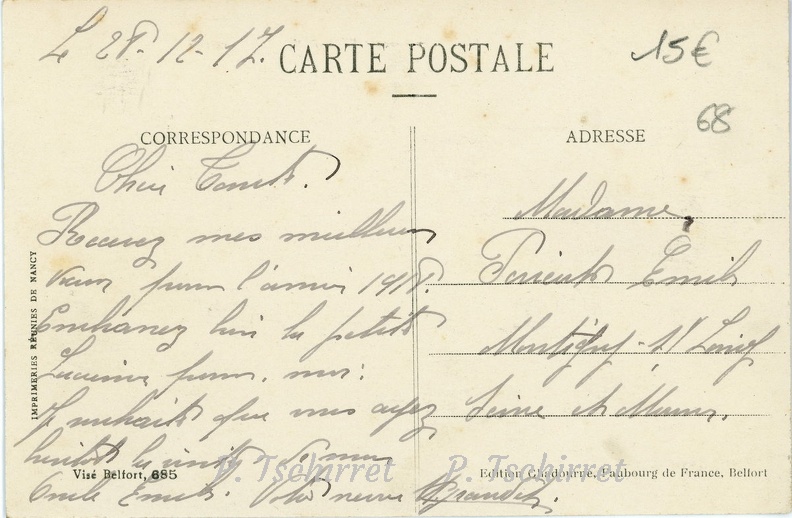 Le 28-12-17.
CARTE POSTALE
15€
68
CORRESPONDANCE
ADRESSE
Chère Tante.
Recevez mes meilleurs
vœux pour l'année 1918.
Embrassez bien la petite
Lucienne pour moi.
Je souhaite que vous ayez
bientôt la visite de mon
oncle Emile. Votre neveu
Madame
Emile
Montigny-s/ Loing
Seine et Marne.
IMPRIMERIES RÉUNIES DE NANCY
Visé Belfort, 685
P. Tschirret P. Tschirret
Edition Chadourne, Faubourg de France, Belfort